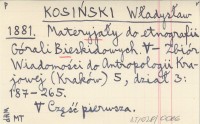 KOSIŃSKI Władysław
1881. Materyjały do etnografii
Górali Bieskidowych ∀ – Zbiór
Wiadomości do Antropologii Kra-
jowej (Kraków) 5, dział 3:
187-265.
∀ Część pierwsza.
MT